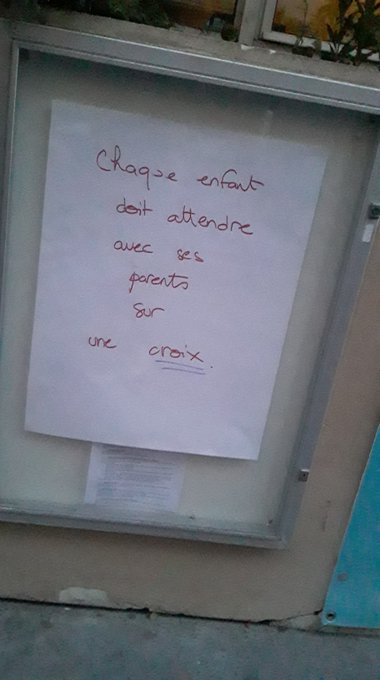 Chaque enfant
doit attendre
avec ses
parents
sur
une croix.